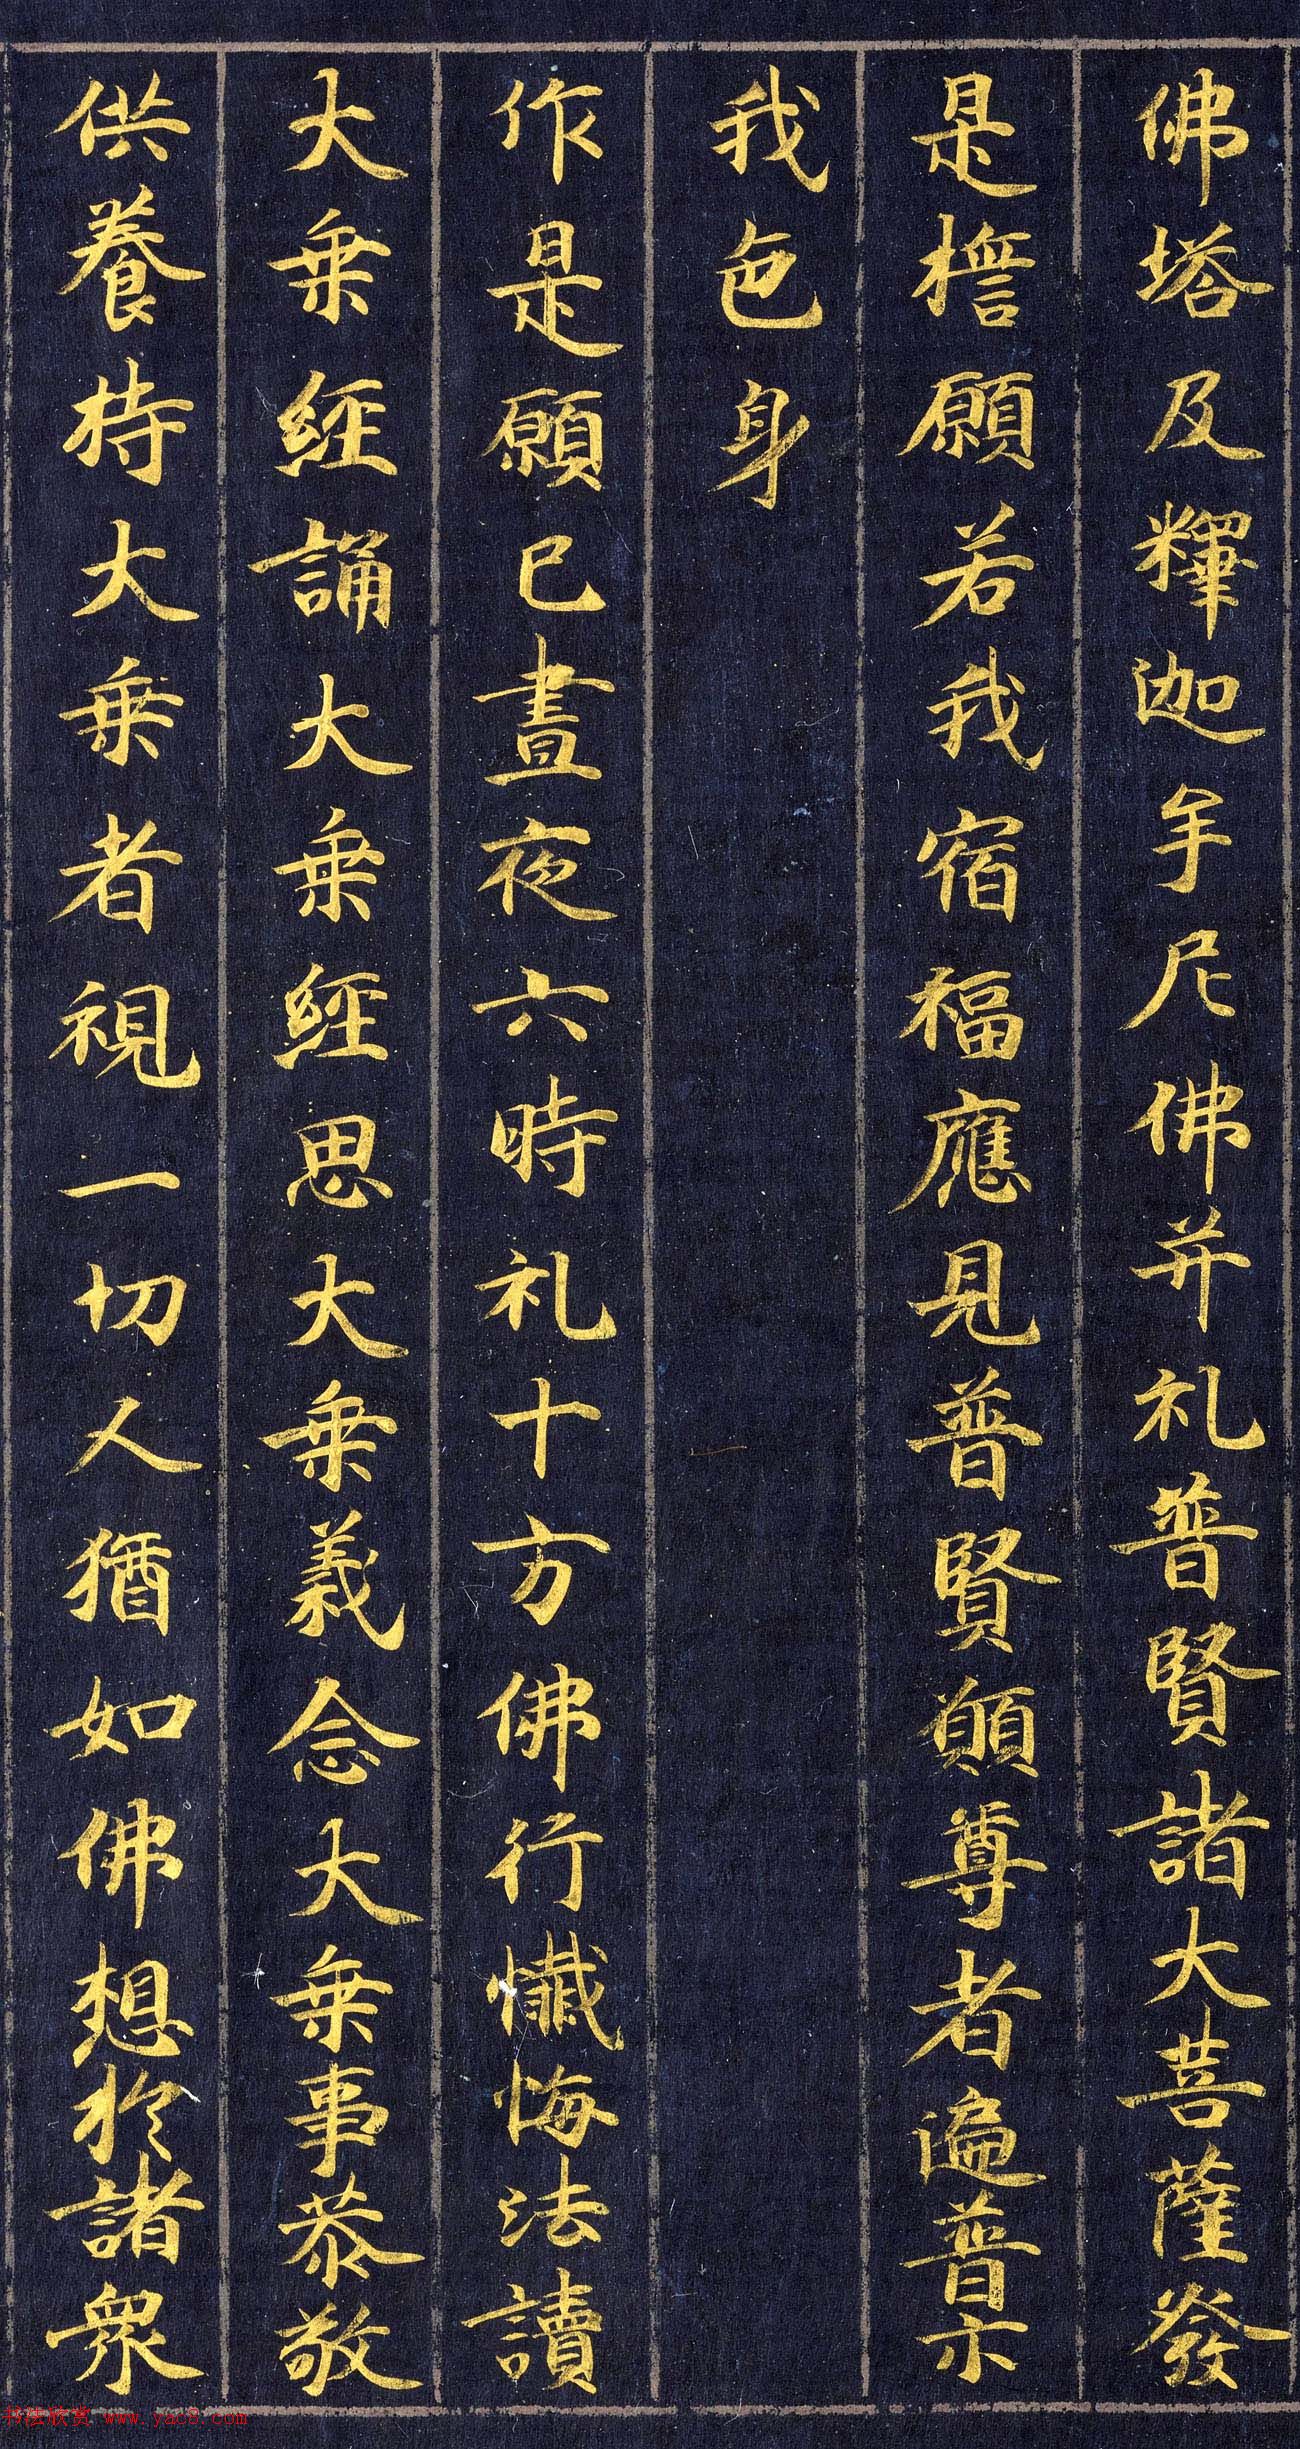 佛塔及釋迦牟尼佛并礼普賢諸大菩薩發
是誓願若我宿福應見普賢願尊者遍普示
我色身
作是願已晝夜六時礼十方佛行懺悔法讀
大乘經誦大乘經思大乘義念大乘事恭敬
供養持大乘者視一切人猶如佛想於諸衆
书法欣赏 www.yac8.com